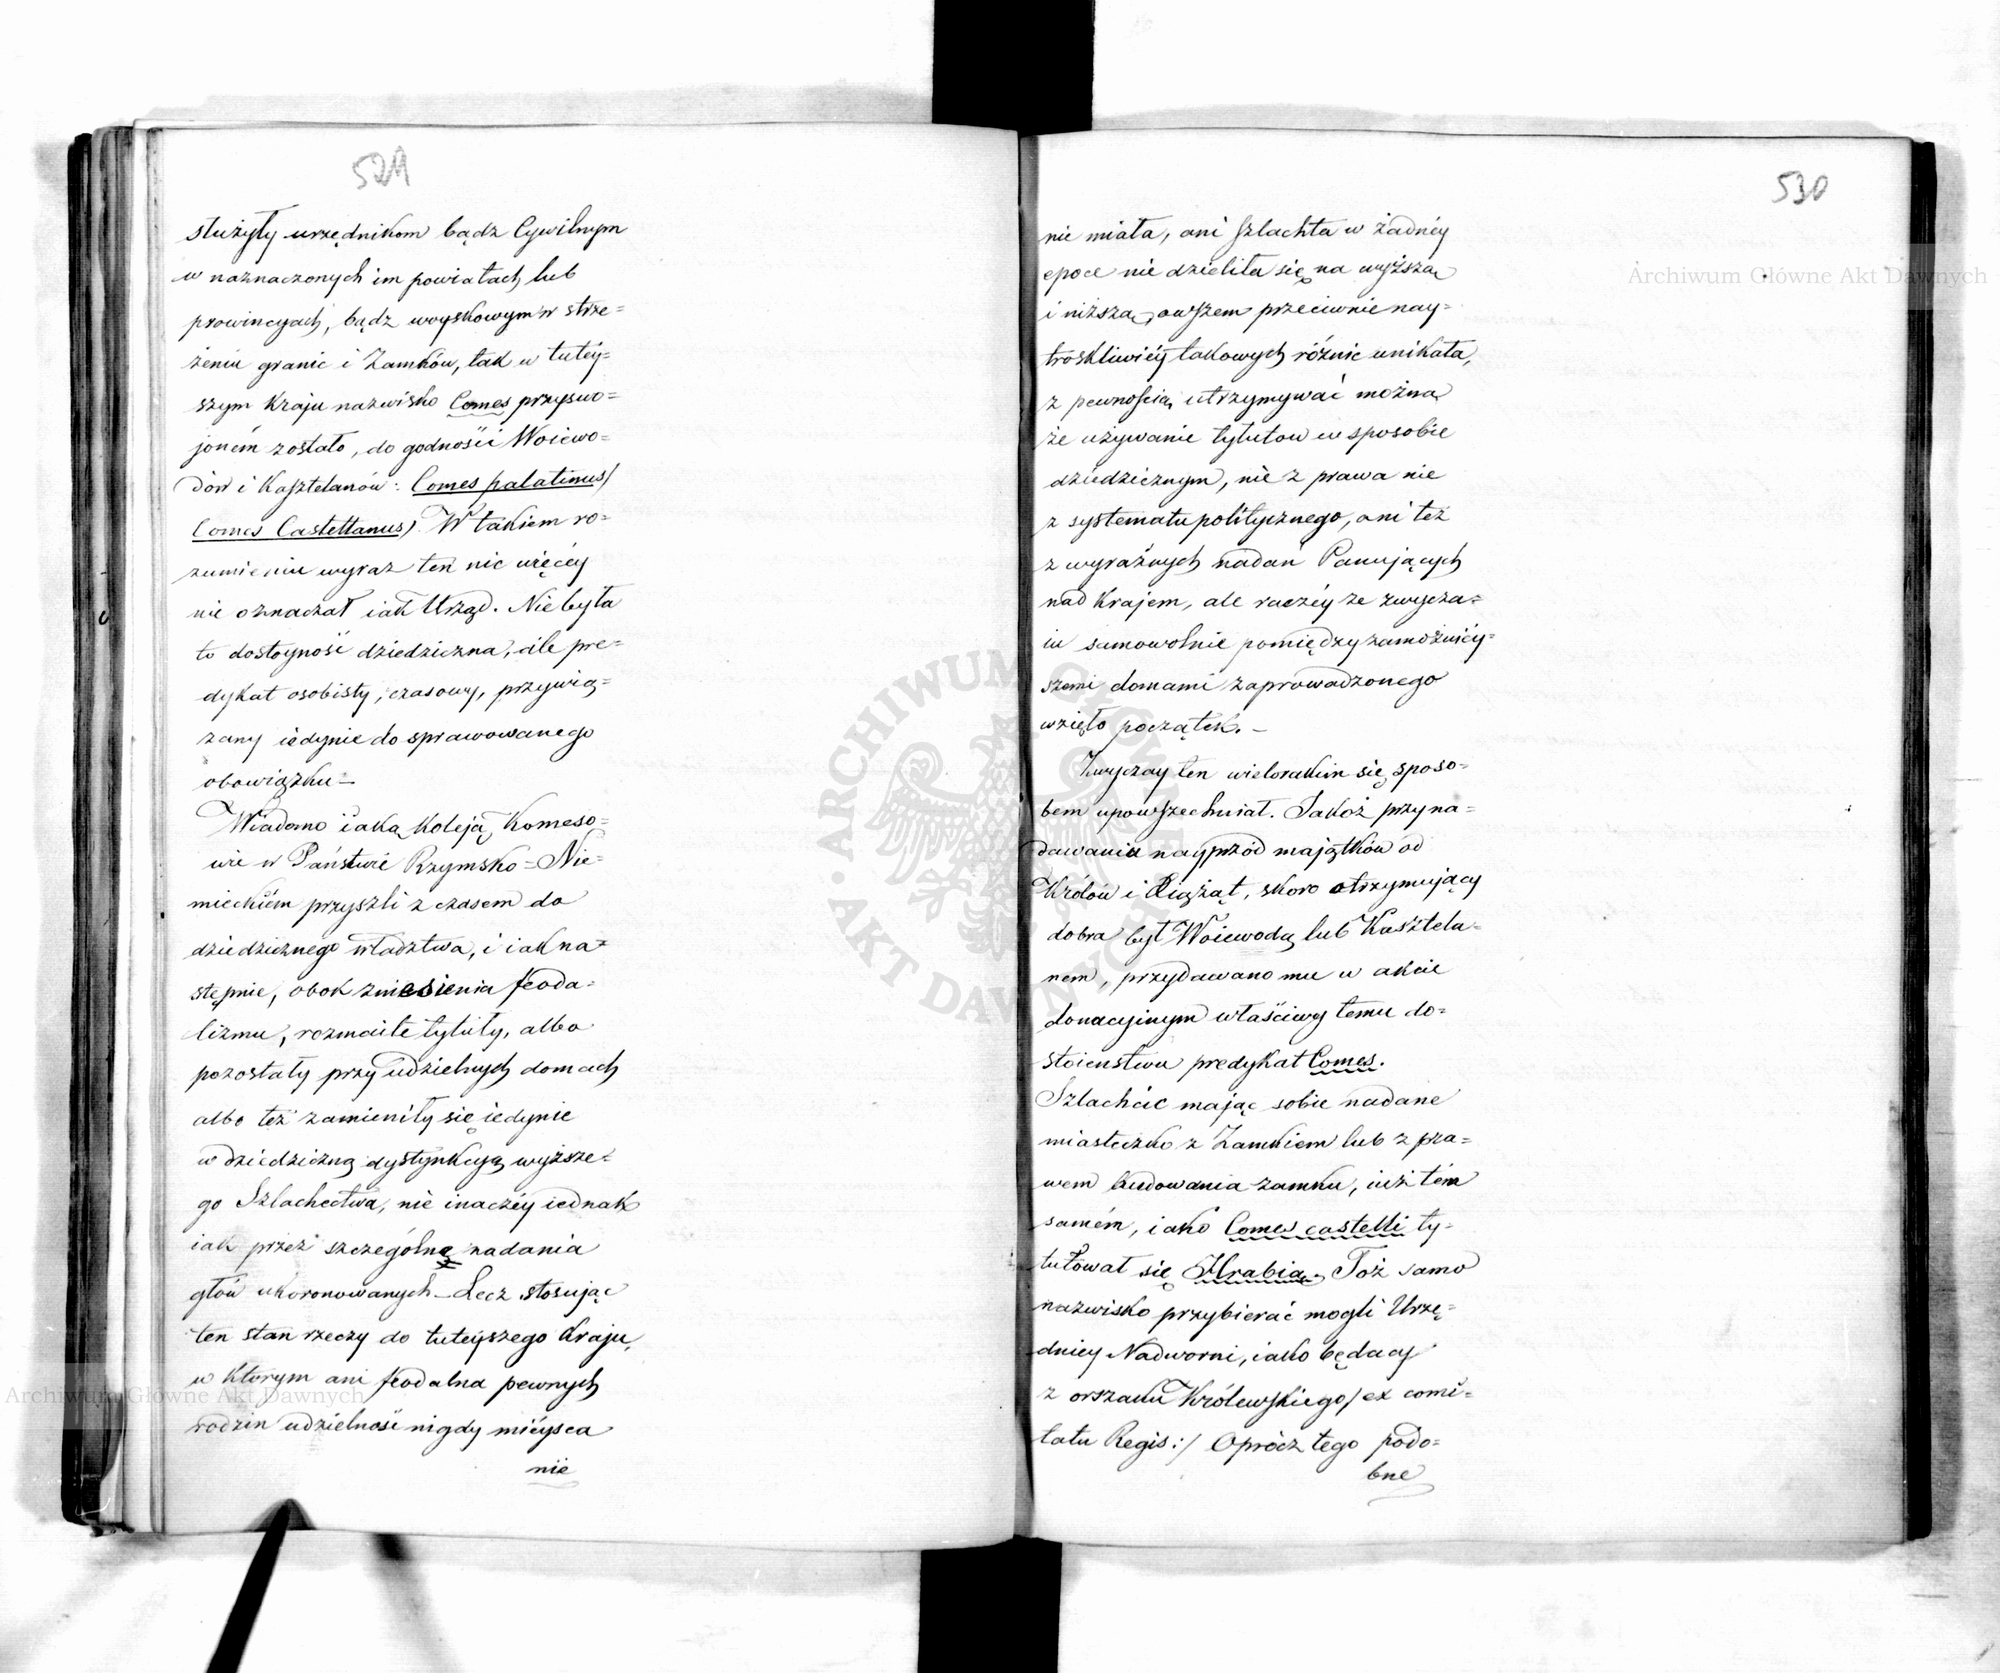 529
służyły urzędnikom bądz Cywilnym
w naznaczonych im powiatach lub
prowincyach, bądz woyskowym w strze=
żeniu granic i Zamków, tak w tutéy=
szym Kraju nazwisko Comes przyswo=
joném zostało, do godności Woiewo=
dów i Kasztelanów: Comes palatinus/
Comes Castellanus/. W takiem ro=
zumieniu wyraz ten nic więcéy
nie oznaczał iak Urząd. Nie była
to dostoyność dziedziczna, ale pre=
dykat osobisty, czasowy, przywią=
zany iedynie do sprawowanego
obowiązku —
Wiadomo iaką koleją Komeso=
wie w Państwie Rzymsko=Nie=
mieckiém przyszli z czasem do
dziedzicznego władztwa, i iak na=
stępnie, obok zniesienia feoda=
lizmu, rozmaite tytuły, albo
pozostały przy udzielnych domach
albo też zamieniły się iedynie
w dziedziczną dystynkcyą wyższe=
go Szlachectwa, nie inaczéy iednak
iak przez szczególne nadania
głów ukoronowanych — Lecz stosując
ten stan rzeczy do tuteyszego Kraju,
w którym ani feodalna pewnych
rodzin udzielność nigdy mieysca
nie
530
nie miała, ani szlachta w żadnéy
epoce nie dzieliła się na wyższą
i niższą, owszem przeciwnie nay=
troskliwiéy takowych różnic unikała,
z pewnością utrzymywać można
że używanie tytułow w sposobie
dziedzicznym, nie z prawa nie
z systematu politycznego, ani też
z wyraźnych nadań Panujących
nad Krajem, ale raczéy ze zwycza=
iu samowolnie pomiędzy zamożniéy=
szemi domami zaprowadzonego
wzięło początek. —
Zwyczay ten wielorakim się sposo=
bem upowszechniał. Jakoż przy na=
dawaniu nayprzód majątków od
Królów i Xiążąt, skoro otrzymujący
dobra był Woiewodą lub Kasztela=
nem, przydawano mu w akcie
donacyinym właściwy temu do=
stoieństwu predykat Comes.
Szlachcic mając sobie nadane
miasteczko z Zamkiem lub z pra=
wem budowania zamku, iuż tém
samém, iako Comes castelli ty=
tułował się Hrabią. Toż samo
nazwisko przybierać mogli Urzę=
dnicy Nadworni, iako będący
z orszaku Królewskiego/ex comi=
tatu Regis:/ Oprócz tego podo=
bne
Archiwum Główne Akt Dawnych
Archiwum Główne Akt Dawnych
ARCHIWUM GŁÓWNE · AKT DAWNYCH ·